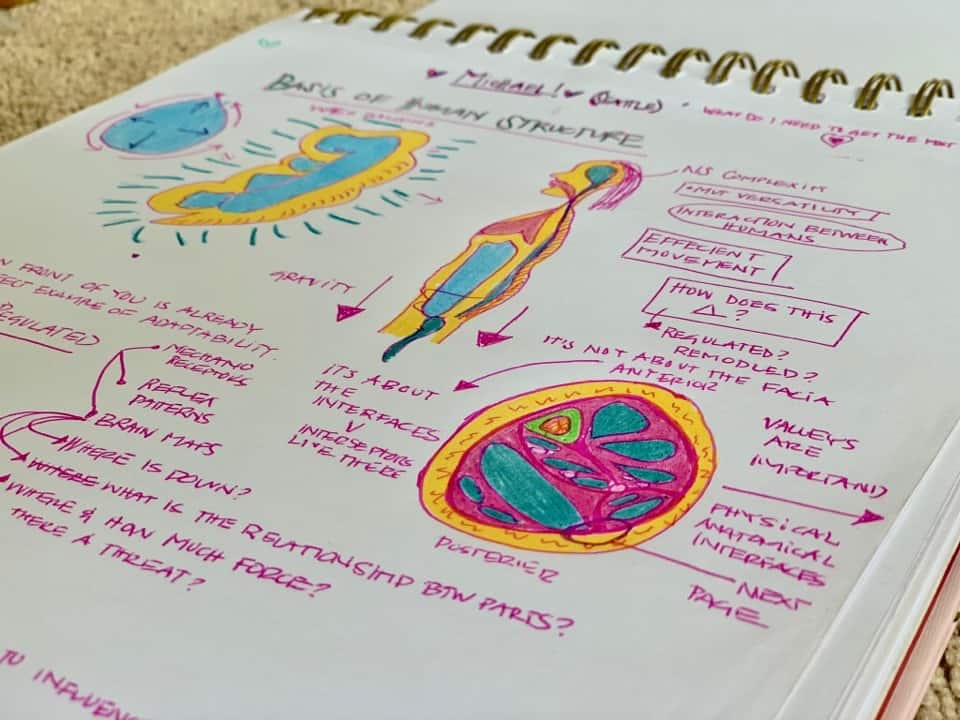 MICHAEL! (SEATTLE)
WHAT DO I NEED TO GET THE MOST
BASIS OF HUMAN STRUCTURE
WATER BALLOONS
NS COMPLEXITY
MVT VERSATILITY
INTERACTION BETWEEN
HUMANS
EFFECIENT
MOVEMENT
HOW DOES THIS
△?
REGULATED?
REMODLED?
GRAVITY
FRONT OF YOU IS ALREADY
EXAMPLE OF ADAPTABILITY.
REGULATED
MECHANO
RECEPTORS
REFLEX
PATTERNS
BRAIN MAPS
WHERE IS DOWN?
WHAT IS THE RELATIONSHIP BTW PARTS?
WHERE & HOW MUCH FORCE?
THERE A THREAT?
IT'S ABOUT
THE
INTERFACES
LIVE THERE
IT'S NOT ABOUT THE FACIA
ANTERIOR
POSTERIER
VALLEYS
ARE
IMPORTAND
PHYSICAL
ANATOMICAL
INTERFACES
NEXT
PAGE